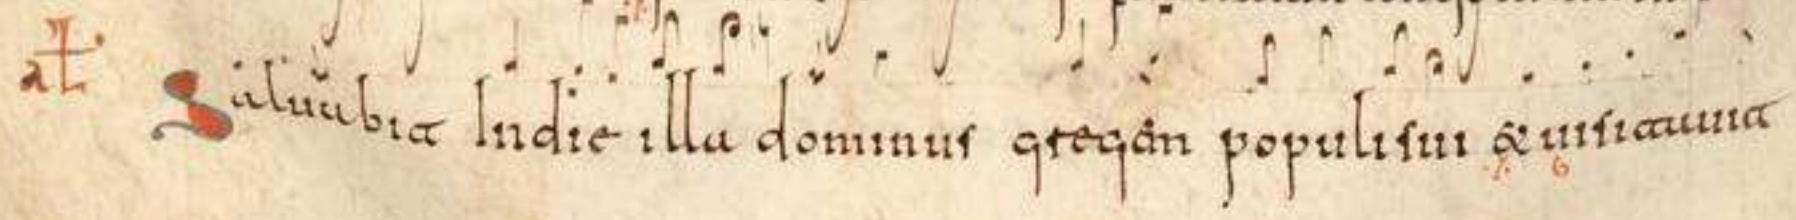 at Saluabit In die illa dominus gregem populi sui & uisitauit